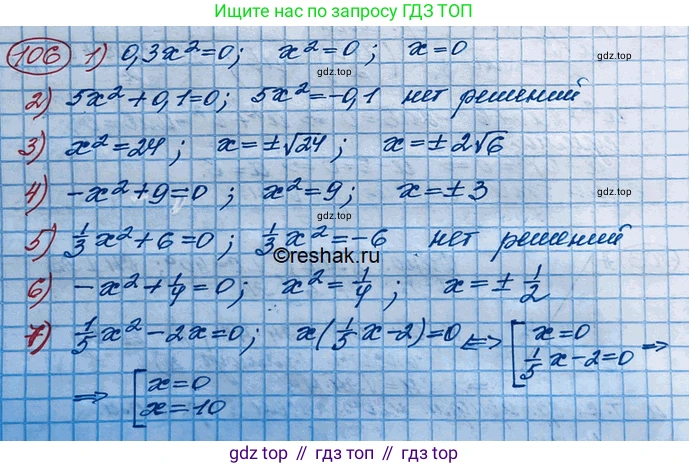 Ищите нас по запросу ГДЗ ТОП
106 1) 0,3x²=0; x²=0; x=0
gdz.top
2) 5x²+0,1=0; 5x²=-0,1 нет решений
3) x²=24; x=±√24; x=±2√6
gdz.top
4) -x²+9=0; x²=9; x=±3
gdz.top
5) 1/3x²+6=0; 1/3x²=-6 нет решений
©reshak.ru
6) -x²+1/4=0; x²=1/4; x=±1/2
gdz.top
7) 1/5x²-2x=0; x(1/5x-2)=0 <=> [x=0
1/5x-2=0 =>
=> [x=0
x=10
gdz top // гдз топ // gdz.top // гдз.топ